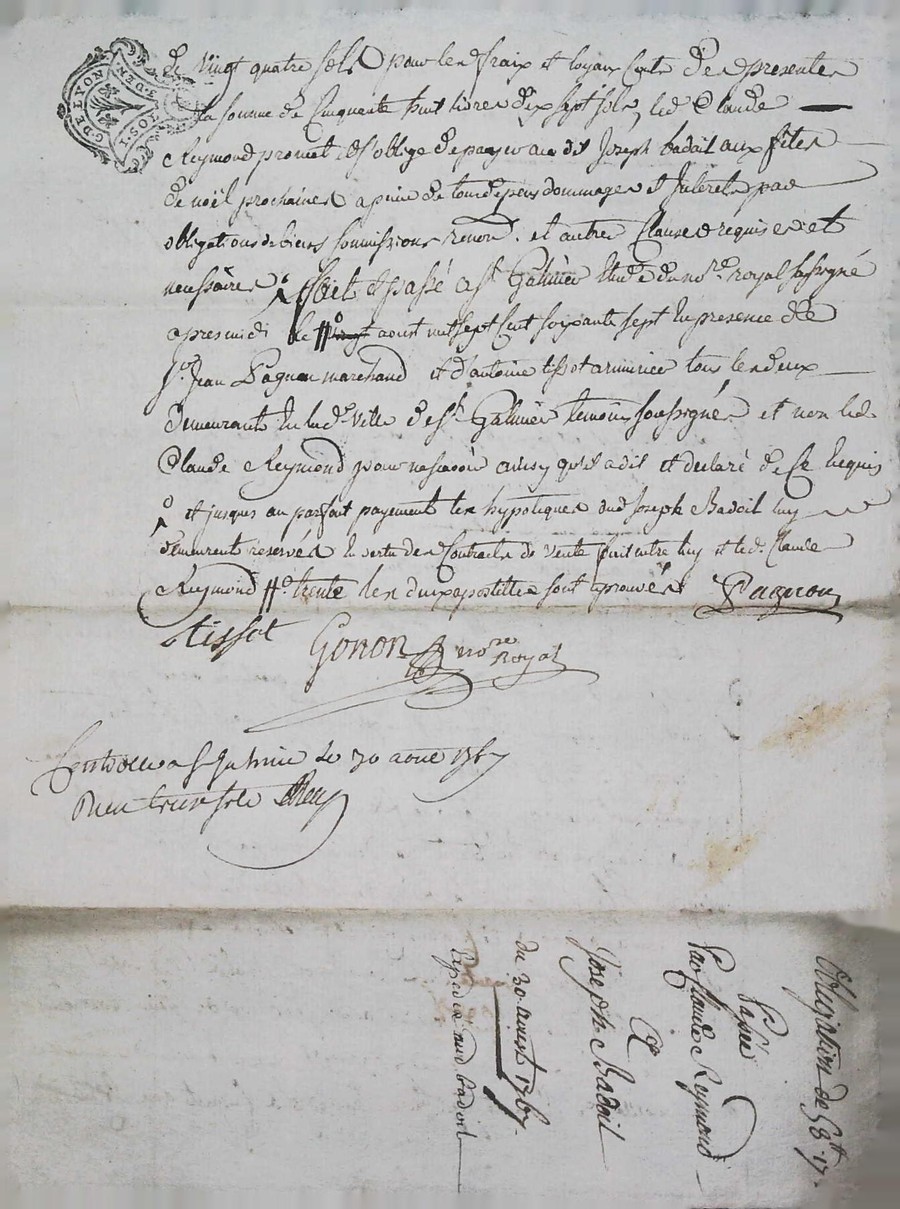 G. DE LYON
DEN. 1. SOL
de vingt quatre sols pour les fraix et loyaux couts des presentes
la somme de Cinquante huit livres dix sept sols, led Claude
Reymond promet et s'oblige de payer au dit Joseph badail aux fetes
de noël prochaines a peine de tous depens dommages et Interets par
obligations de biens soumissions renon. et autres Clauses requises et
nessaires fait et passé a St Galmier Etude du no.re royal sossigné
apres midi le ffo vingt aoust mil sept cent soixante sept En presence de
Sr Jean Pagnon marchand et d'antoine tissot armurier tous les deux
demeurant En lad. Ville de St Galmier temoins soussignés et non led.
Claude Reymond pour ne scavoir ainsy qu'il a dit et declaré de ce Enquis
o et jusques au parfait payement les hypotiques dud Joseph Badail luy
demeurent reservés En vertu des Contracts de vente fait entre luy et led. Claude
Reymond ffo trente les deux apostilles sont aprouvés Pagnon
tissot Gonon nore Royal
Controllé a St Galmier le 30 aout 1767
Reçu treize sols
Obligation de 58tt 17s
Passée
Par Claude Reymond
A
Joseph Badail
du 30 aoust 1767
Expedié aud badail